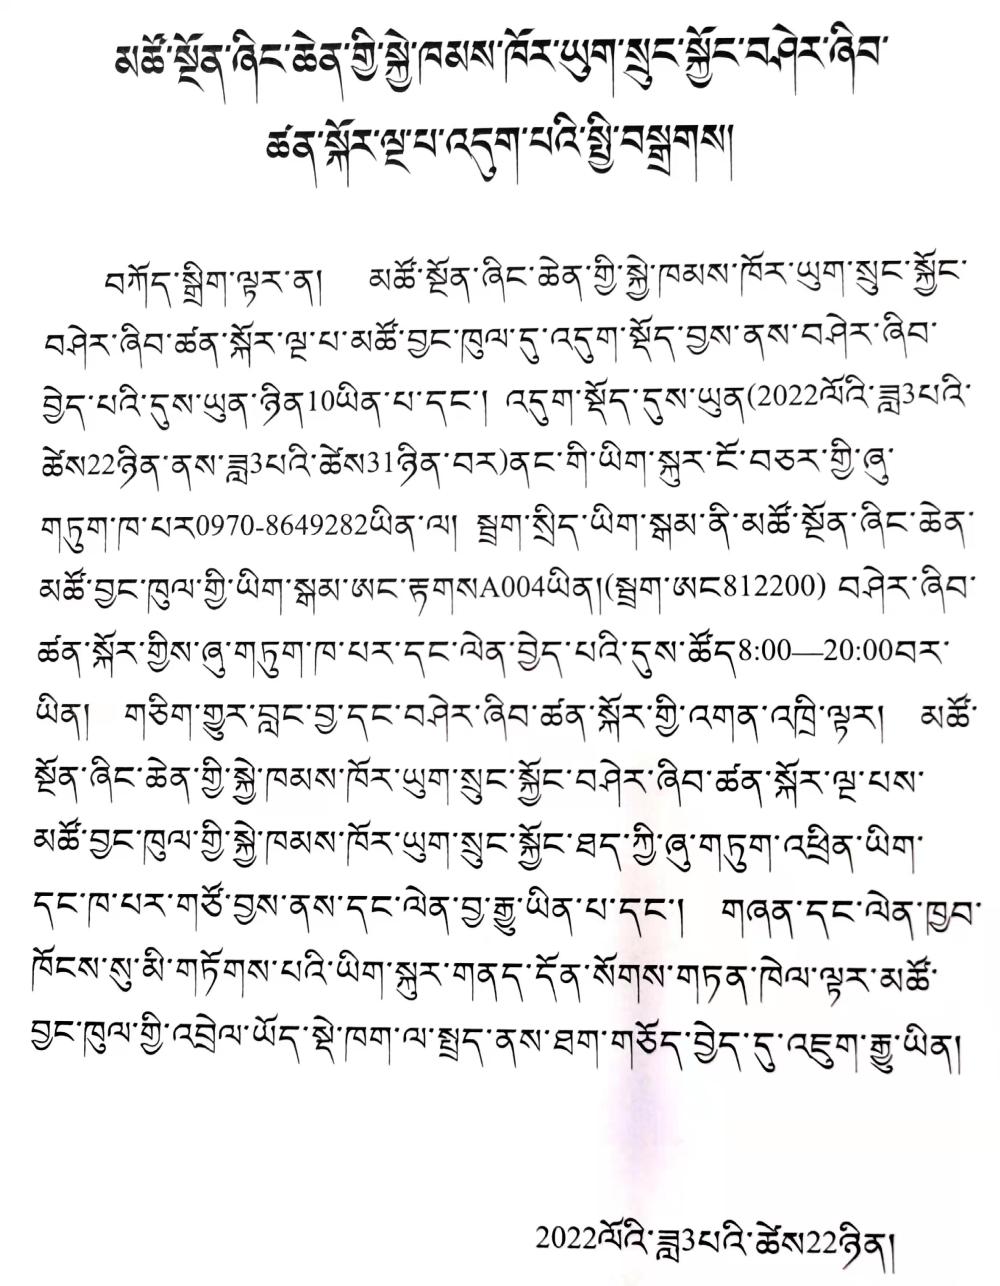 མཚོ་སྔོན་ཞིང་ཆེན་གྱི་སྐྱེ་ཁམས་ཁོར་ཡུག་སྲུང་སྐྱོང་བཤེར་ཞིབ་
ཚན་སྐོར་ལྔ་པ་འདུག་པའི་སྤྱི་བསྒྲགས།
བཀོད་སྒྲིག་ལྟར་ན། མཚོ་སྔོན་ཞིང་ཆེན་གྱི་སྐྱེ་ཁམས་ཁོར་ཡུག་སྲུང་སྐྱོང་
བཤེར་ཞིབ་ཚན་སྐོར་ལྔ་པ་མཚོ་བྱང་ཁུལ་དུ་འདུག་སྡོད་བྱས་ནས་བཤེར་ཞིབ་
བྱེད་པའི་དུས་ཡུན་ཉིན10ཡིན་པ་དང་། འདུག་སྡོད་དུས་ཡུན(2022ལོའི་ཟླ3པའི་
ཚེས22ཉིན་ནས་ཟླ3པའི་ཚེས31ཉིན་བར)ནང་གི་ཡིག་སྐུར་ངོ་བཅར་གྱི་ཞུ་
གཏུག་ཁ་པར0970-8649282ཡིན་ལ། སྦྲག་སྲིད་ཡིག་སྒམ་ནི་མཚོ་སྔོན་ཞིང་ཆེན་
མཚོ་བྱང་ཁུལ་གྱི་ཡིག་སྒམ་ཨང་རྟགསA004ཡིན།(སྦྲག་ཨང812200) བཤེར་ཞིབ་
ཚན་སྐོར་གྱིས་ཞུ་གཏུག་ཁ་པར་དང་ལེན་བྱེད་པའི་དུས་ཚོད8:00—20:00བར་
ཡིན། གཅིག་གྱུར་བླང་བྱ་དང་བཤེར་ཞིབ་ཚན་སྐོར་གྱི་འགན་འཁྲི་ལྟར། མཚོ་
སྔོན་ཞིང་ཆེན་གྱི་སྐྱེ་ཁམས་ཁོར་ཡུག་སྲུང་སྐྱོང་བཤེར་ཞིབ་ཚན་སྐོར་ལྔ་པས་
མཚོ་བྱང་ཁུལ་གྱི་སྐྱེ་ཁམས་ཁོར་ཡུག་སྲུང་སྐྱོང་ཐད་ཀྱི་ཞུ་གཏུག་འཕྲིན་ཡིག་
དང་ཁ་པར་གཙོ་བྱས་ནས་དང་ལེན་བྱ་རྒྱུ་ཡིན་པ་དང་། གཞན་དང་ལེན་ཁྱབ་
ཁོངས་སུ་མི་གཏོགས་པའི་ཡིག་སྐུར་གནད་དོན་སོགས་གཏན་ཁེལ་ལྟར་མཚོ་
བྱང་ཁུལ་གྱི་འབྲེལ་ཡོད་སྡེ་ཁག་ལ་སྤྲད་ནས་ཐག་གཅོད་བྱེད་དུ་འཇུག་རྒྱུ་ཡིན།
2022ལོའི་ཟླ3པའི་ཚེས22ཉིན།